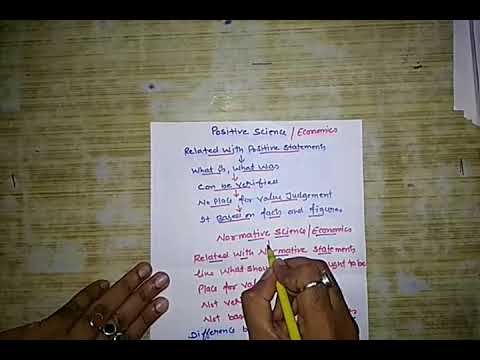 Positive Science / Economics
Related With Positive Statements
What is, What Was
Can be Verified
No Place for Value Judgement
It Based on facts and figures
Normative Science / Economics
Related With Normative Statements
like What ought to be
Place for
Not
Not
Difference